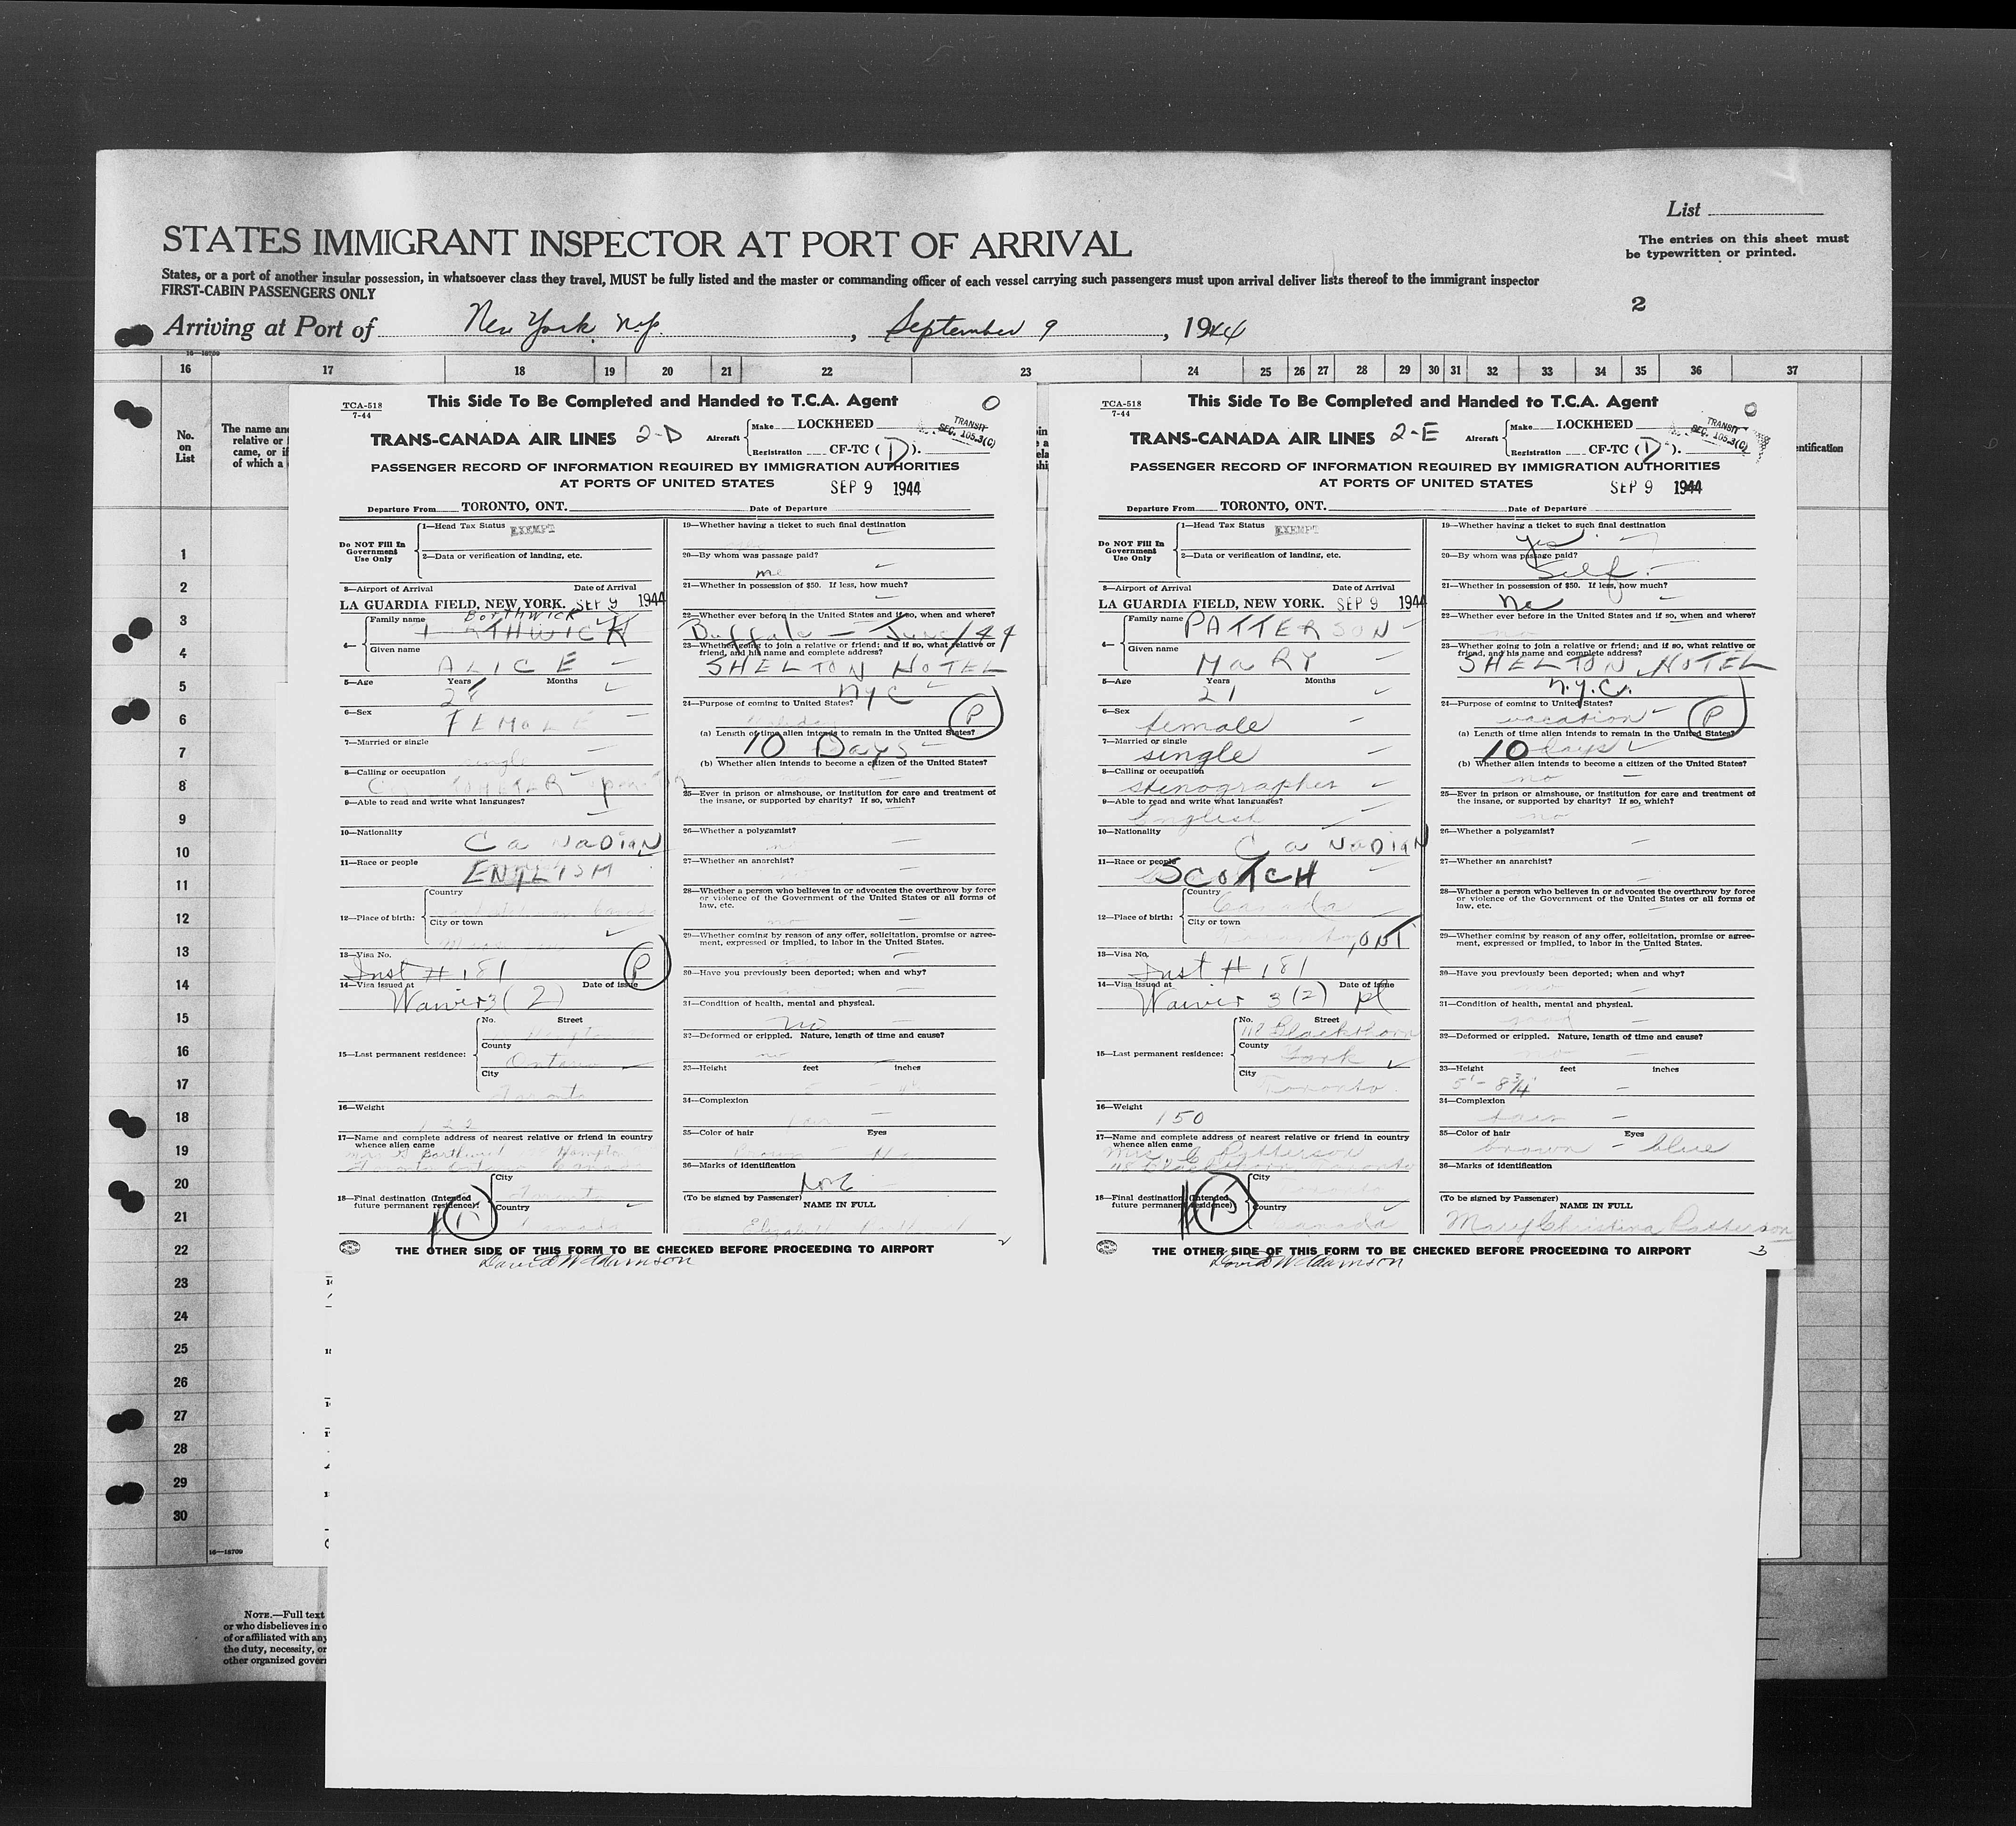 List
The entries on this sheet must
be typewritten or printed.
STATES IMMIGRANT INSPECTOR AT PORT OF ARRIVAL
States, or a port of another insular possession, in whatsoever class they travel, MUST be fully listed and the master or commanding officer of each vessel carrying such passengers must upon arrival deliver lists thereof to the immigrant inspector
FIRST-CABIN PASSENGERS ONLY
2
Arriving at Port of New York, N.Y., September 9, 1944
16—18709
16 17 18 19 20 21 22 23 24 25 26 27 28 29 30 31 32 33 34 35 36 37
No.
on
List
The name and
relative or
came, or if
of which a
entification
1
2
3
4
5
6
7
8
9
10
11
12
13
14
15
16
17
18
19
20
21
22
23
24
25
26
27
28
29
30
16—18709
NOTE.—Full text
or who disbelieves in o
of or affiliated with any
the duty, necessity, or
other organized govern
TCA-518
7-44
This Side To Be Completed and Handed to T.C.A. Agent
TRANS-CANADA AIR LINES 2-D
Aircraft
Make LOCKHEED
Registration CF-TC (D).
TRANSIT
SEC. 105.3(C)
PASSENGER RECORD OF INFORMATION REQUIRED BY IMMIGRATION AUTHORITIES
AT PORTS OF UNITED STATES SEP 9 1944
Departure From TORONTO, ONT. Date of Departure
Do NOT Fill In
Government
Use Only
1—Head Tax Status EXEMPT
2—Data or verification of landing, etc.
3—Airport of Arrival Date of Arrival
LA GUARDIA FIELD, NEW YORK. SEP 9 1944
4— Family name Borthwick
Given name
ALICE
5—Age Years Months
28
6—Sex
FEMALE
7—Married or single
single
8—Calling or occupation
9—Able to read and write what languages?
10—Nationality
CaNaDiaN
11—Race or people
ENGLISH
12—Place of birth: Country
City or town
13—Visa No.
Inst # 181 P
14—Visa issued at Date of issue
Waiver 3(2)
15—Last permanent residence: No. Street
County
Ontario
City
Toronto
16—Weight
122
17—Name and complete address of nearest relative or friend in country
whence alien came
Toronto Ontario Canada
18—Final destination (Intended
future permanent residence): City
Toronto
Country
Canada
19—Whether having a ticket to such final destination
20—By whom was passage paid?
me
21—Whether in possession of $50. If less, how much?
22—Whether ever before in the United States and if so, when and where?
Buffalo — June/44
23—Whether going to join a relative or friend; and if so, what relative or
friend, and his name and complete address?
SHELTON HOTEL
NYC
24—Purpose of coming to United States?
P
(a) Length of time alien intends to remain in the United States?
10 Days
(b) Whether alien intends to become a citizen of the United States?
25—Ever in prison or almshouse, or institution for care and treatment of
the insane, or supported by charity? If so, which?
26—Whether a polygamist?
no
27—Whether an anarchist?
28—Whether a person who believes in or advocates the overthrow by force
or violence of the Government of the United States or all forms of
law, etc.
no
29—Whether coming by reason of any offer, solicitation, promise or agree-
ment, expressed or implied, to labor in the United States.
30—Have you previously been deported; when and why?
31—Condition of health, mental and physical.
no
32—Deformed or crippled. Nature, length of time and cause?
no
33—Height feet inches
34—Complexion
fair
35—Color of hair Eyes
36—Marks of identification
None
(To be signed by Passenger)
NAME IN FULL
Elizabeth
THE OTHER SIDE OF THIS FORM TO BE CHECKED BEFORE PROCEEDING TO AIRPORT
2
David W Adamson
TCA-518
7-44
This Side To Be Completed and Handed to T.C.A. Agent
TRANS-CANADA AIR LINES 2-E
Aircraft
Make LOCKHEED
Registration CF-TC (D).
TRANSIT
SEC. 105.3(C)
PASSENGER RECORD OF INFORMATION REQUIRED BY IMMIGRATION AUTHORITIES
AT PORTS OF UNITED STATES SEP 9 1944
Departure From TORONTO, ONT. Date of Departure
Do NOT Fill In
Government
Use Only
1—Head Tax Status EXEMPT
2—Data or verification of landing, etc.
3—Airport of Arrival Date of Arrival
LA GUARDIA FIELD, NEW YORK. SEP 9 1944
4— Family name PATTERSON
Given name
MaRY
5—Age Years Months
21
6—Sex
female
7—Married or single
single
8—Calling or occupation
stenographer
9—Able to read and write what languages?
English
10—Nationality
CaNaDiaN
11—Race or people
SCOTCH
12—Place of birth: Country
Canada
City or town
, ONT
13—Visa No.
Inst # 181
14—Visa issued at Date of issue
Waiver 3(2) pl
15—Last permanent residence: No. Street
118 Blackthorn
County
York
City
Toronto
16—Weight
150
17—Name and complete address of nearest relative or friend in country
whence alien came
Mrs. C Patterson
118 Blackthorn Toronto
18—Final destination (Intended
future permanent residence): City
Toronto
Country
Canada
19—Whether having a ticket to such final destination
yes
20—By whom was passage paid?
Self.
21—Whether in possession of $50. If less, how much?
no
22—Whether ever before in the United States and if so, when and where?
no
23—Whether going to join a relative or friend; and if so, what relative or
friend, and his name and complete address?
SHELTON HOTEL
n.y.C.
24—Purpose of coming to United States?
vacation P
(a) Length of time alien intends to remain in the United States?
10 days
(b) Whether alien intends to become a citizen of the United States?
no
25—Ever in prison or almshouse, or institution for care and treatment of
the insane, or supported by charity? If so, which?
no
26—Whether a polygamist?
27—Whether an anarchist?
28—Whether a person who believes in or advocates the overthrow by force
or violence of the Government of the United States or all forms of
law, etc.
29—Whether coming by reason of any offer, solicitation, promise or agree-
ment, expressed or implied, to labor in the United States.
30—Have you previously been deported; when and why?
no
31—Condition of health, mental and physical.
good
32—Deformed or crippled. Nature, length of time and cause?
no
33—Height feet inches
5' - 8 3/4
34—Complexion
fair
35—Color of hair Eyes
brown — blue
36—Marks of identification
(To be signed by Passenger)
NAME IN FULL
Mary Christina Patterson
THE OTHER SIDE OF THIS FORM TO BE CHECKED BEFORE PROCEEDING TO AIRPORT
3
David W Adamson